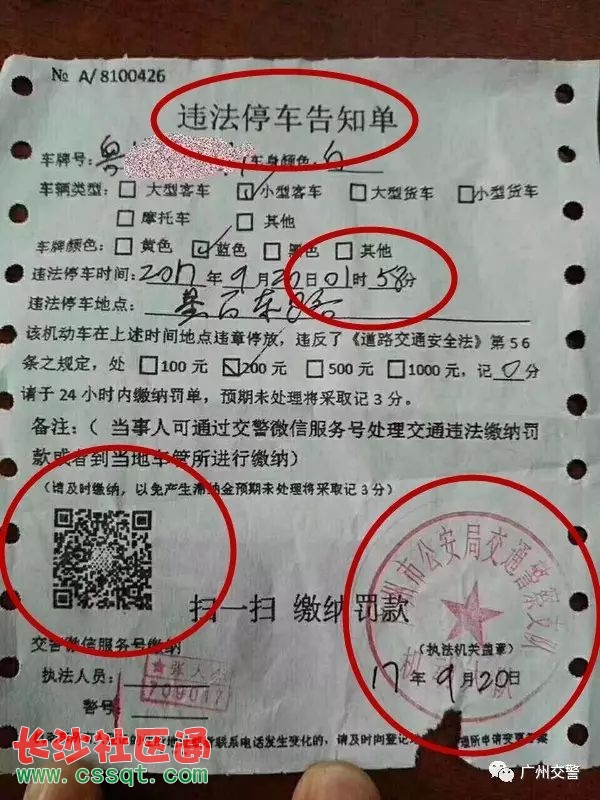 № A/8100426
违法停车告知单
车牌号：粤 车身颜色：白
车辆类型：□ 大型客车 ☑小型客车 □大型货车 □小型货车
□摩托车 □ 其他
车牌颜色：□黄色 ☑蓝色 □黑色 □其他
违法停车时间：2017年9月20日01时58分
违法停车地点：
该机动车在上述时间地点违章停放，违反了《道路交通安全法》第56
条之规定，处 □100元 ☑200元 □500元 □1000元，记0分
请于24小时内缴纳罚单，预期未处理将采取记3分。
备注：（ 当事人可通过交警微信服务号处理交通违法缴纳罚
款或者到当地车管所进行缴纳）
（请及时缴纳，以免产生滞纳金预期未处理将采取记3分）
州市公安局交通警察支队
扫一扫 缴纳罚款
交警微信服务号缴纳
（执法机关盖章）
执法人员：
17年9月20日
警号
联系电话发生变化的，请及时登记
长沙社区通
www.cssqt.com
广州交警